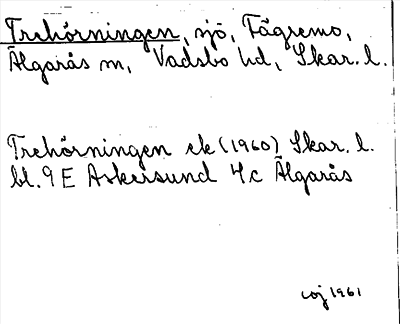 Trehörningen, sjö, Fägremo,
Älgarås sn, Vadsbo hd, Skar. l.
Trehörningen ek (1960) Skar. l.
bl. 9E Askersund 4c Älgarås
1961